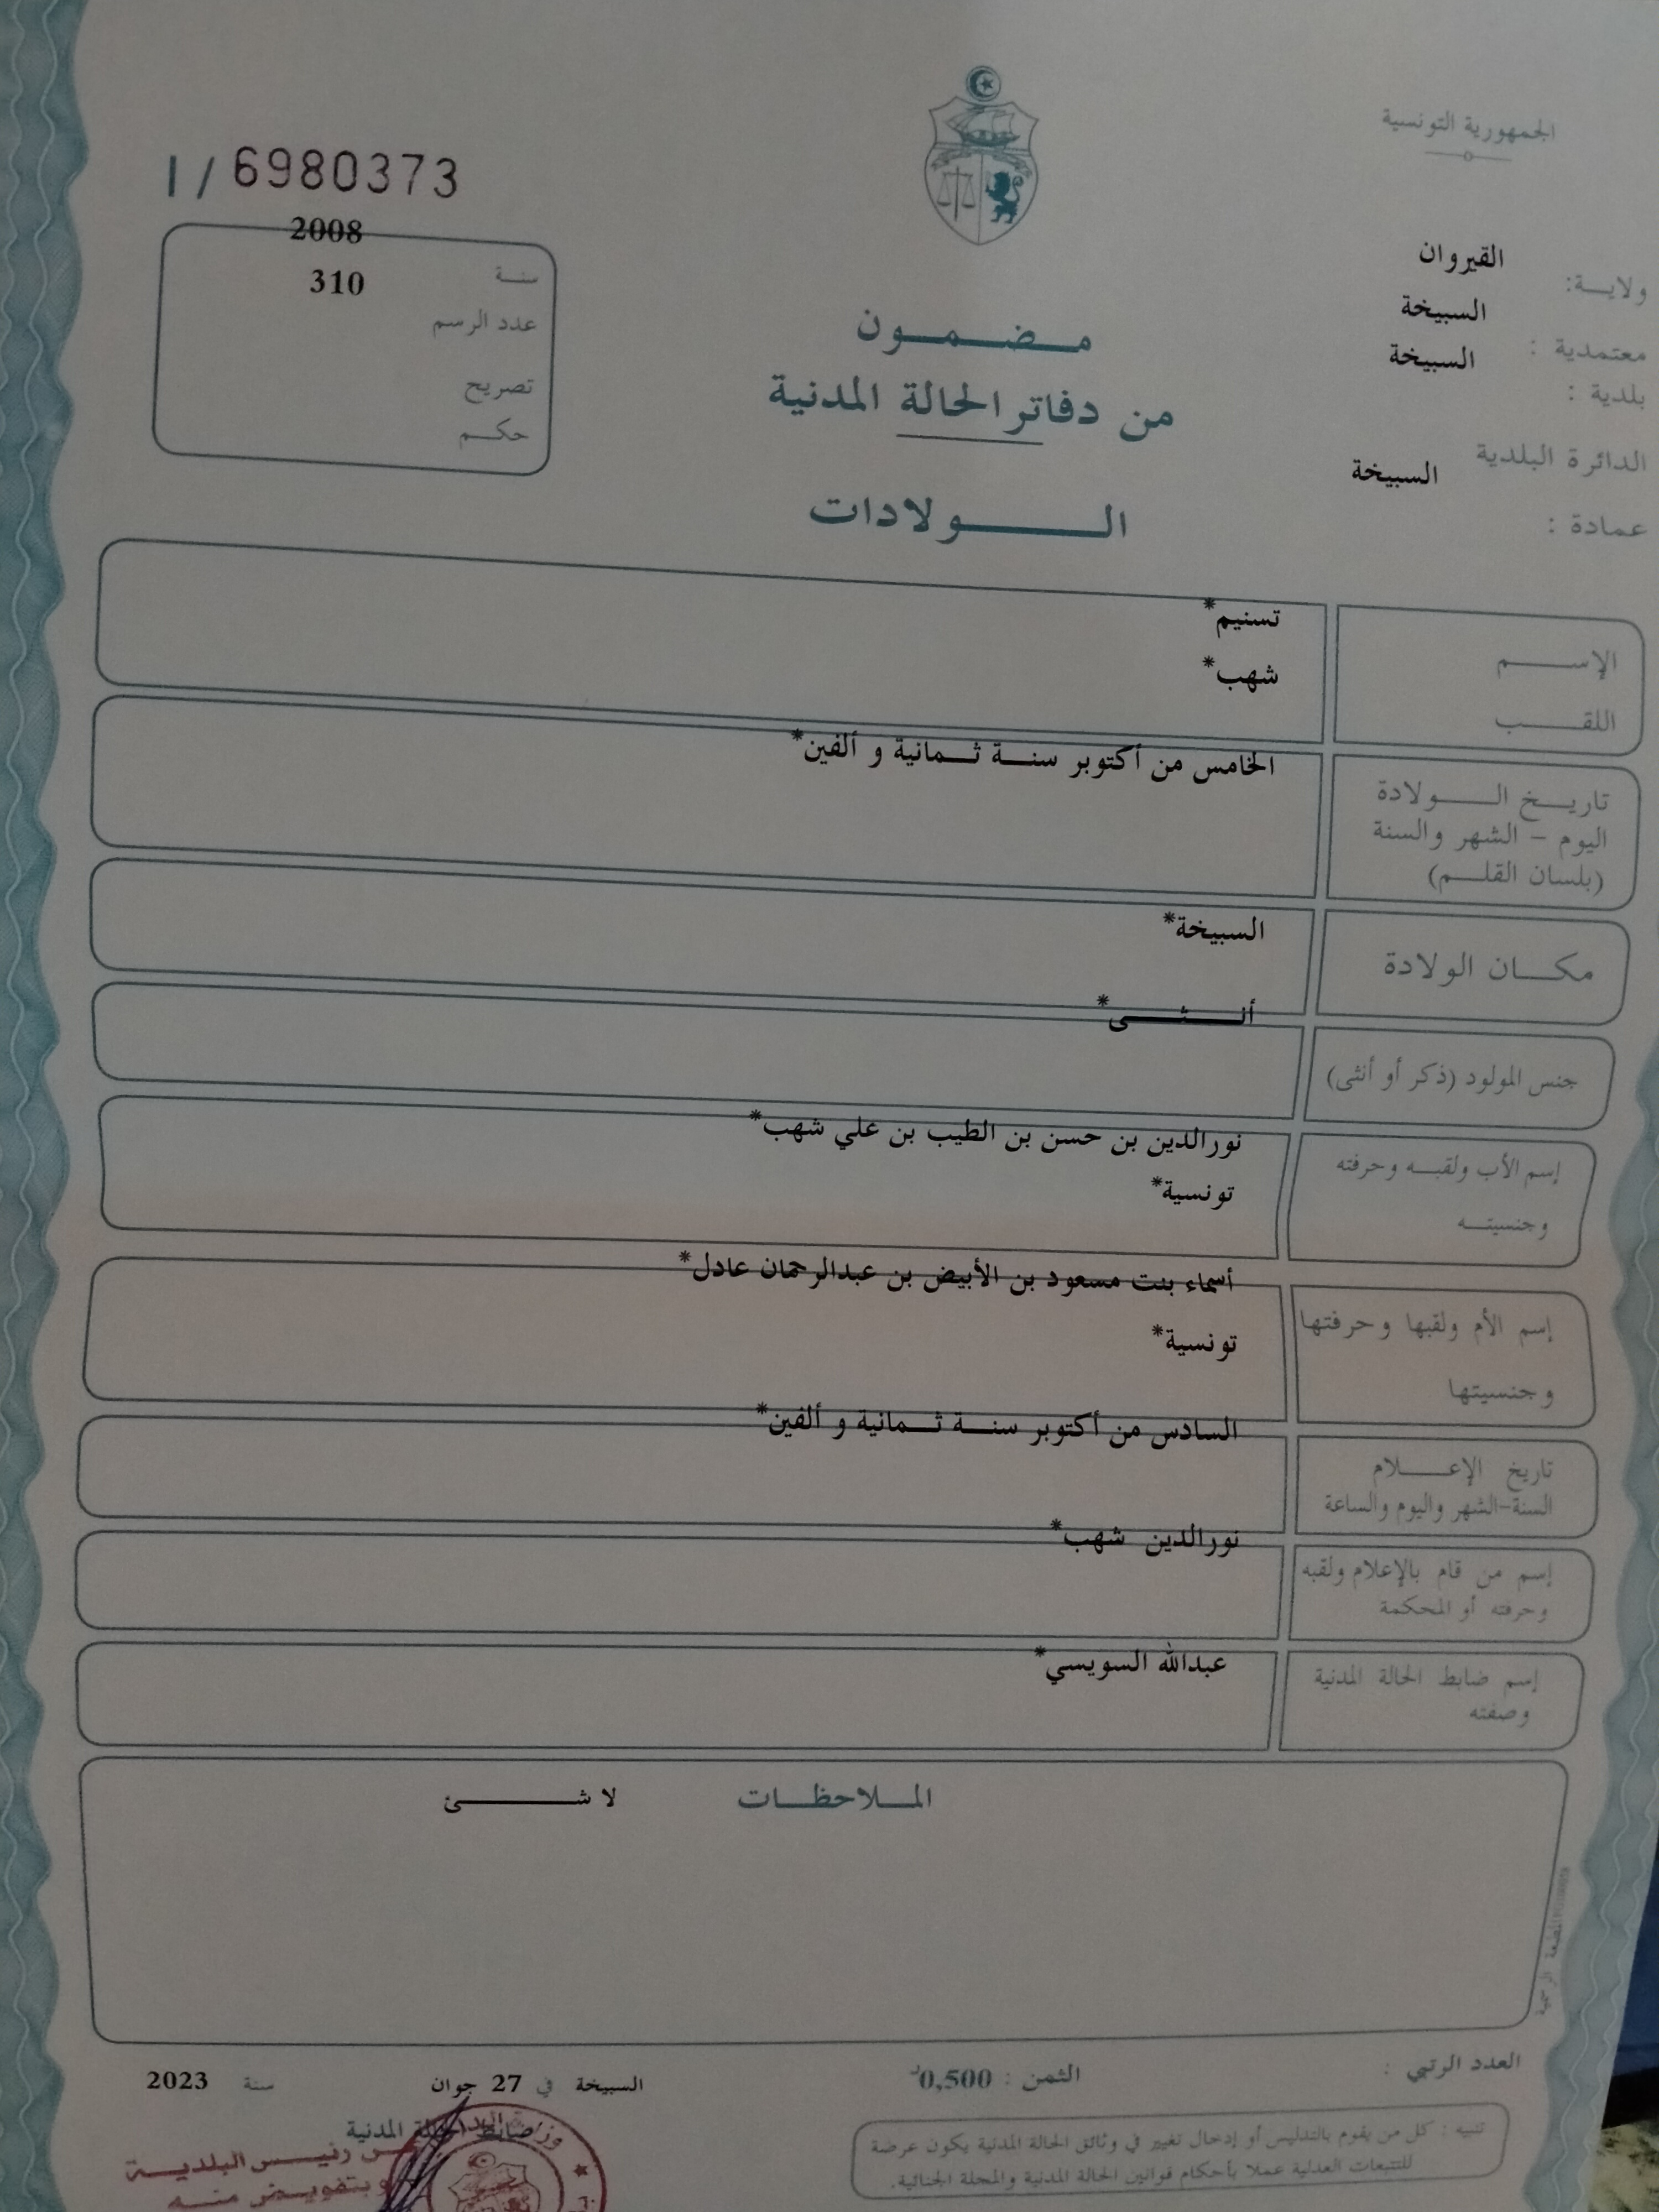 الجمهورية التونسية
1 / 6980373
ولايـــة: القيروان
معتمدية : السبيخة
بلدية : السبيخة
الدائرة البلدية
عمادة : السبيخة
2008
سنــة
310
عدد الرسم
تصريح
حكــم
مـــضـــمـــون
من دفاتر الحالة المدنية
الـــــولادات
الإســـــم تسنيم*
اللقـــــب شهب*
تاريــخ الـــولادة الخامس من أكتوبر سنــة ثــمانية و ألفين*
اليوم - الشهر والسنة
(بلسان القلــم)
مكـــان الولادة السبيخة*
جنس المولود (ذكر أو أنثى) أنــــثــــى*
إسم الأب ولقبــه وحرفته نورالدين بن حسن بن الطيب بن علي شهب*
وجنسيتــه تونسية*
إسم الأم ولقبها وحرفتها أسماء بنت مسعود بن الأبيض بن عبدالرحمان عادل*
وجنسيتها تونسية*
تاريخ الإعـــلام السادس من أكتوبر سنــة ثــمانية و ألفين*
السنة-الشهر واليوم والساعة
إسم من قام بالإعلام ولقبه نورالدين شهب*
وحرفته أو المحكمة
إسم ضابط الحالة المدنية عبدالله السويسي*
وصفته
المــلاحظــات لا شـــــئ
المطبعة الرسمية
العدد الرتبي :
الثمن : 0,500د
السبيخة في 27 جوان سنة 2023
ضابط الحالة المدنية
تنبيه : كل من يقوم بالتدليس أو إدخال تغيير في وثائق الحالة المدنية يكون عرضة
للتتبعات العدلية عملا بأحكام قوانين الحالة المدنية والمجلة الجنائية.
عن رئيس البلديــة
و بتفويض منــه